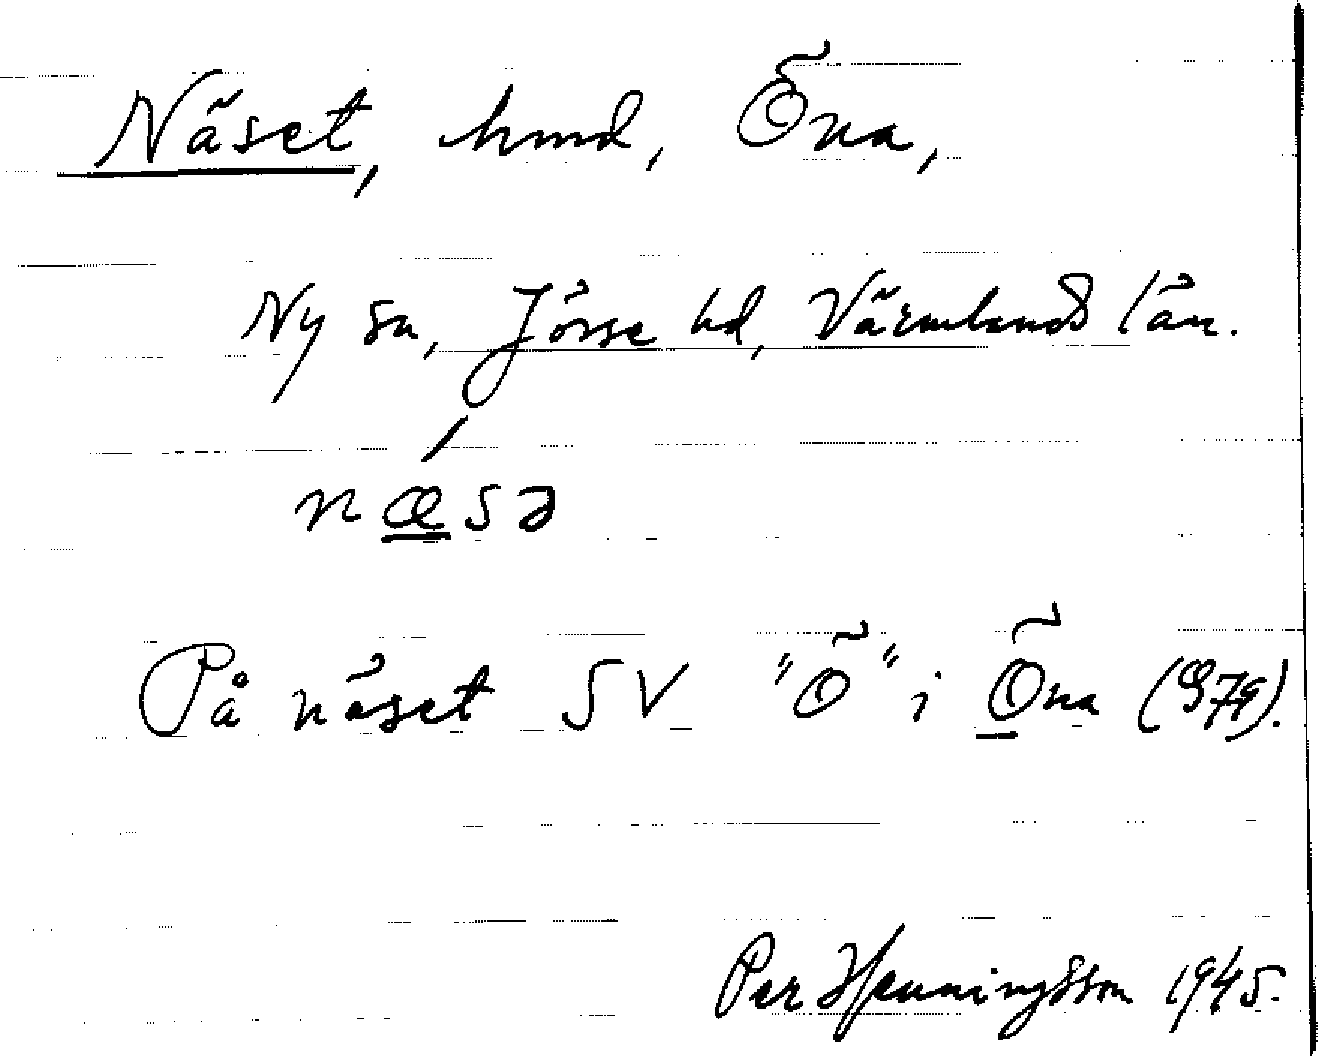 Näset, hmd, Öna,
Ny sn, Jösse hd, Värmlands län.
næsə
På näset SV "Ö" i Öna (979).
Per Henningsson 1945.